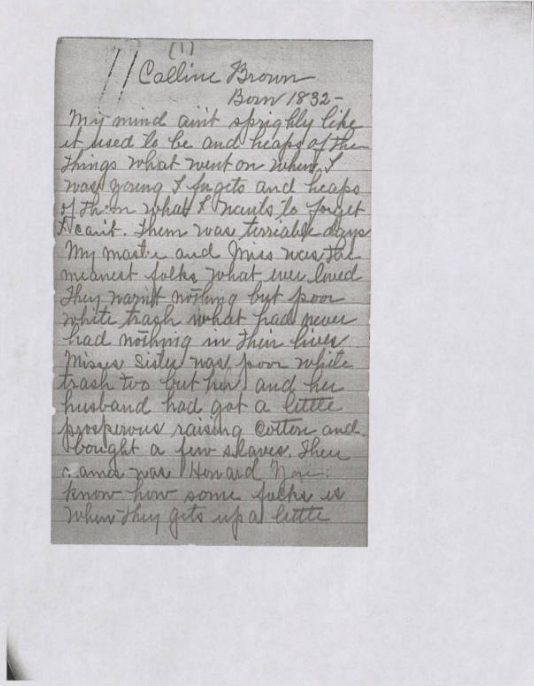 (1)
Calline Brown
Born 1832-
My mind ain't sprighly like
it used to be and heaps of the
things what went on when I
was young I fugets and heaps
of them what I wants to forget
I can't. Them was terriable days
My master and Miss was the
meanest folks what ever lived
They warn't nothing but poor
white trash what had never
had nothing in their lives
Misses Sister was poor white
trash too but her and her
husband had got a little
prosperous raising Cotton and
bought a few slaves. Their
name was Howard You
know how some folks is
when they gets up a little